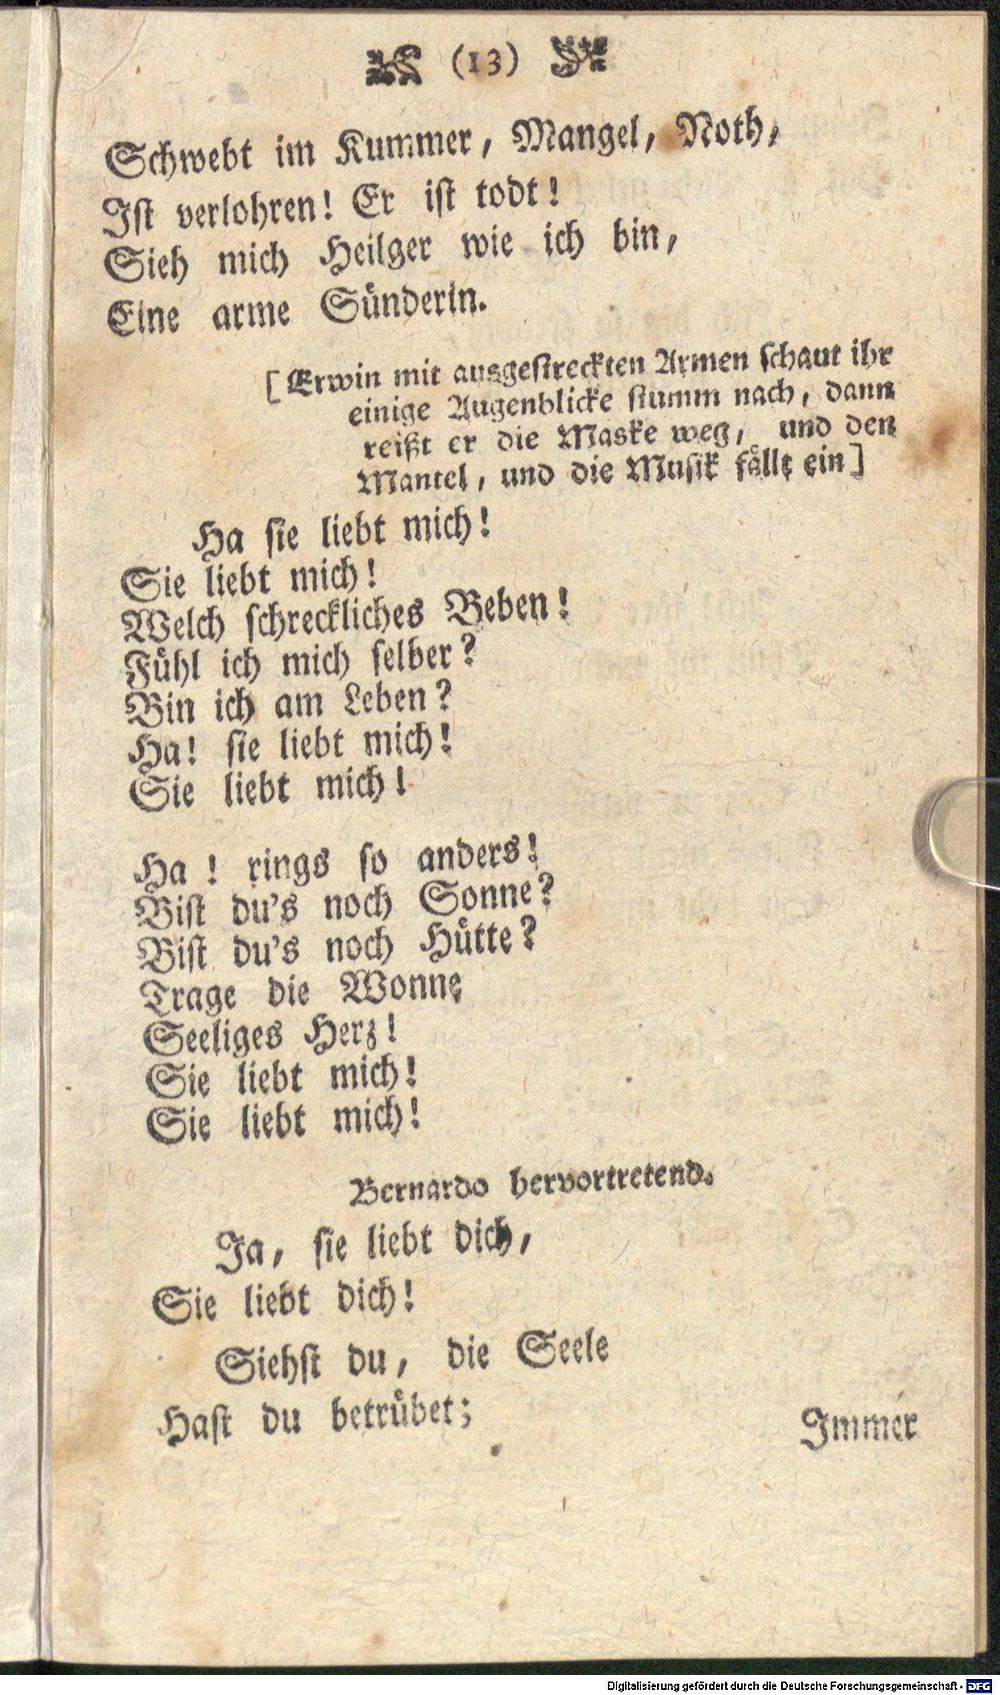 (13)
Schwebt im Kummer, Mangel, Noth,
Ist verlohren! Er ist todt!
Sieh mich Heilger wie ich bin,
Eine arme Sünderin.
[Erwin mit ausgestreckten Armen schaut ihr
einige Augenblicke stumm nach, dann
reißt er die Maske weg, und den
Mantel, und die Musik fällt ein]
Ha sie liebt mich!
Sie liebt mich!
Welch schreckliches Beben!
Fühl ich mich selber?
Bin ich am Leben?
Ha! sie liebt mich!
Sie liebt mich!
Ha! rings so anders!
Bist du's noch Sonne?
Bist du's noch Hütte?
Trage die Wonne
Seeliges Herz!
Sie liebt mich!
Sie liebt mich!
Bernardo hervortretend.
Ja, sie liebt dich,
Sie liebt dich!
Siehst du, die Seele
Hast du betrübet;
Immer
Digitalisierung gefördert durch die Deutsche Forschungsgemeinschaft - DFG